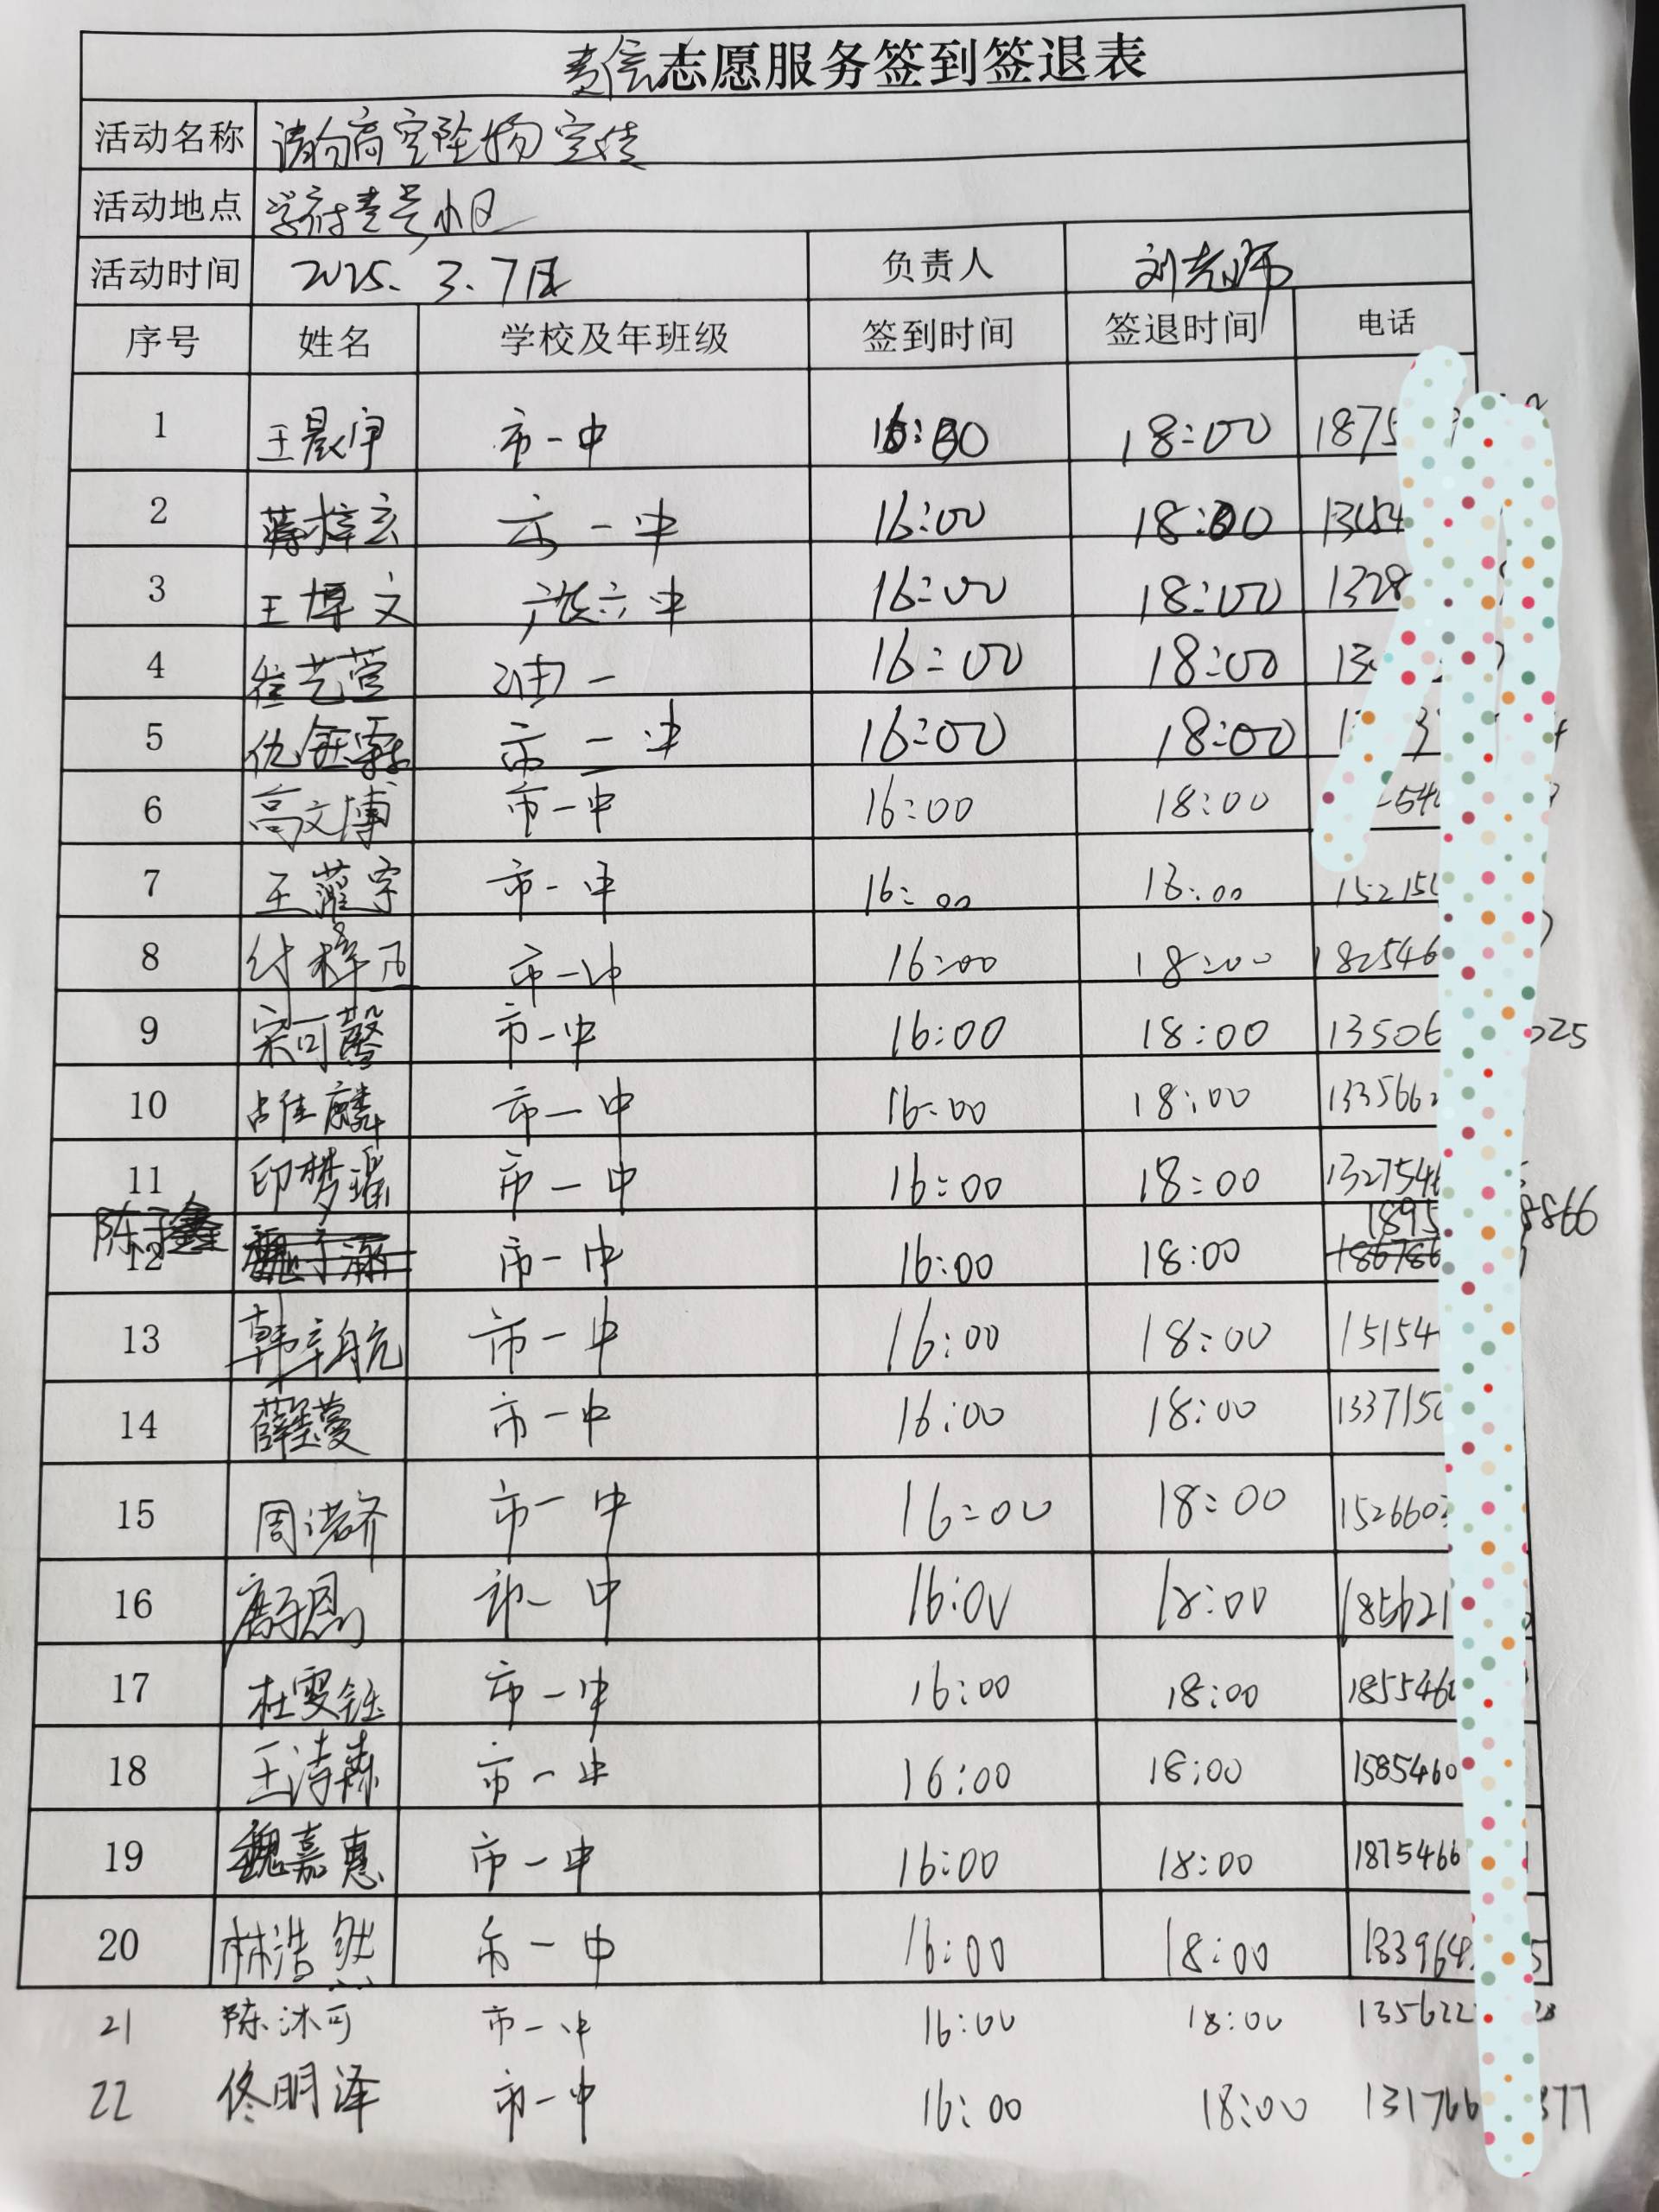 志愿服务签到签退表
活动名称 请勿高空坠物宣传
活动地点 学府壹号小区
活动时间 2025. 3. 7日 负责人 刘老师
序号 姓名 学校及年班级 签到时间 签退时间 电话
1 王晨宇 市一中 16:00 18:00 1875
2 蒋梓玄 市一中 16:00 18:00 13054
3 王博文 六中 16:00 18:00 1328
4 崔艺萱 油一 16:00 18:00 13
5 仇钰霖 市一中 16:00 18:00
6 高文博 市一中 16:00 18:00 -54
7 王 宇 市一中 16:00 18:00 15215
8 付梓 市一中 16:00 18:00 182546
9 宋可馨 市一中 16:00 18:00 13506 025
10 占佳麟 市一中 16:00 18:00 133566
11 印梦瑶 市一中 16:00 18:00 1327546
陈子鑫 1895 8866
12 市一中 16:00 18:00 186786
13 韩宇航 市一中 16:00 18:00 15154
14 薛 蔓 市一中 16:00 18:00 133715
15 周浩齐 市一中 16:00 18:00 152660
16 唐子恩 市一中 16:00 18:00 185621
17 杜雯钰 市一中 16:00 18:00 185546
18 王涛森 市一中 16:00 18:00 1585460
19 魏嘉惠 市一中 16:00 18:00 1875466
20 林浩然 市一中 16:00 18:00 133964 5
21 陈沐可 市一中 16:00 18:00 135622 28
22 佟明泽 市一中 16:00 18:00 131766 377